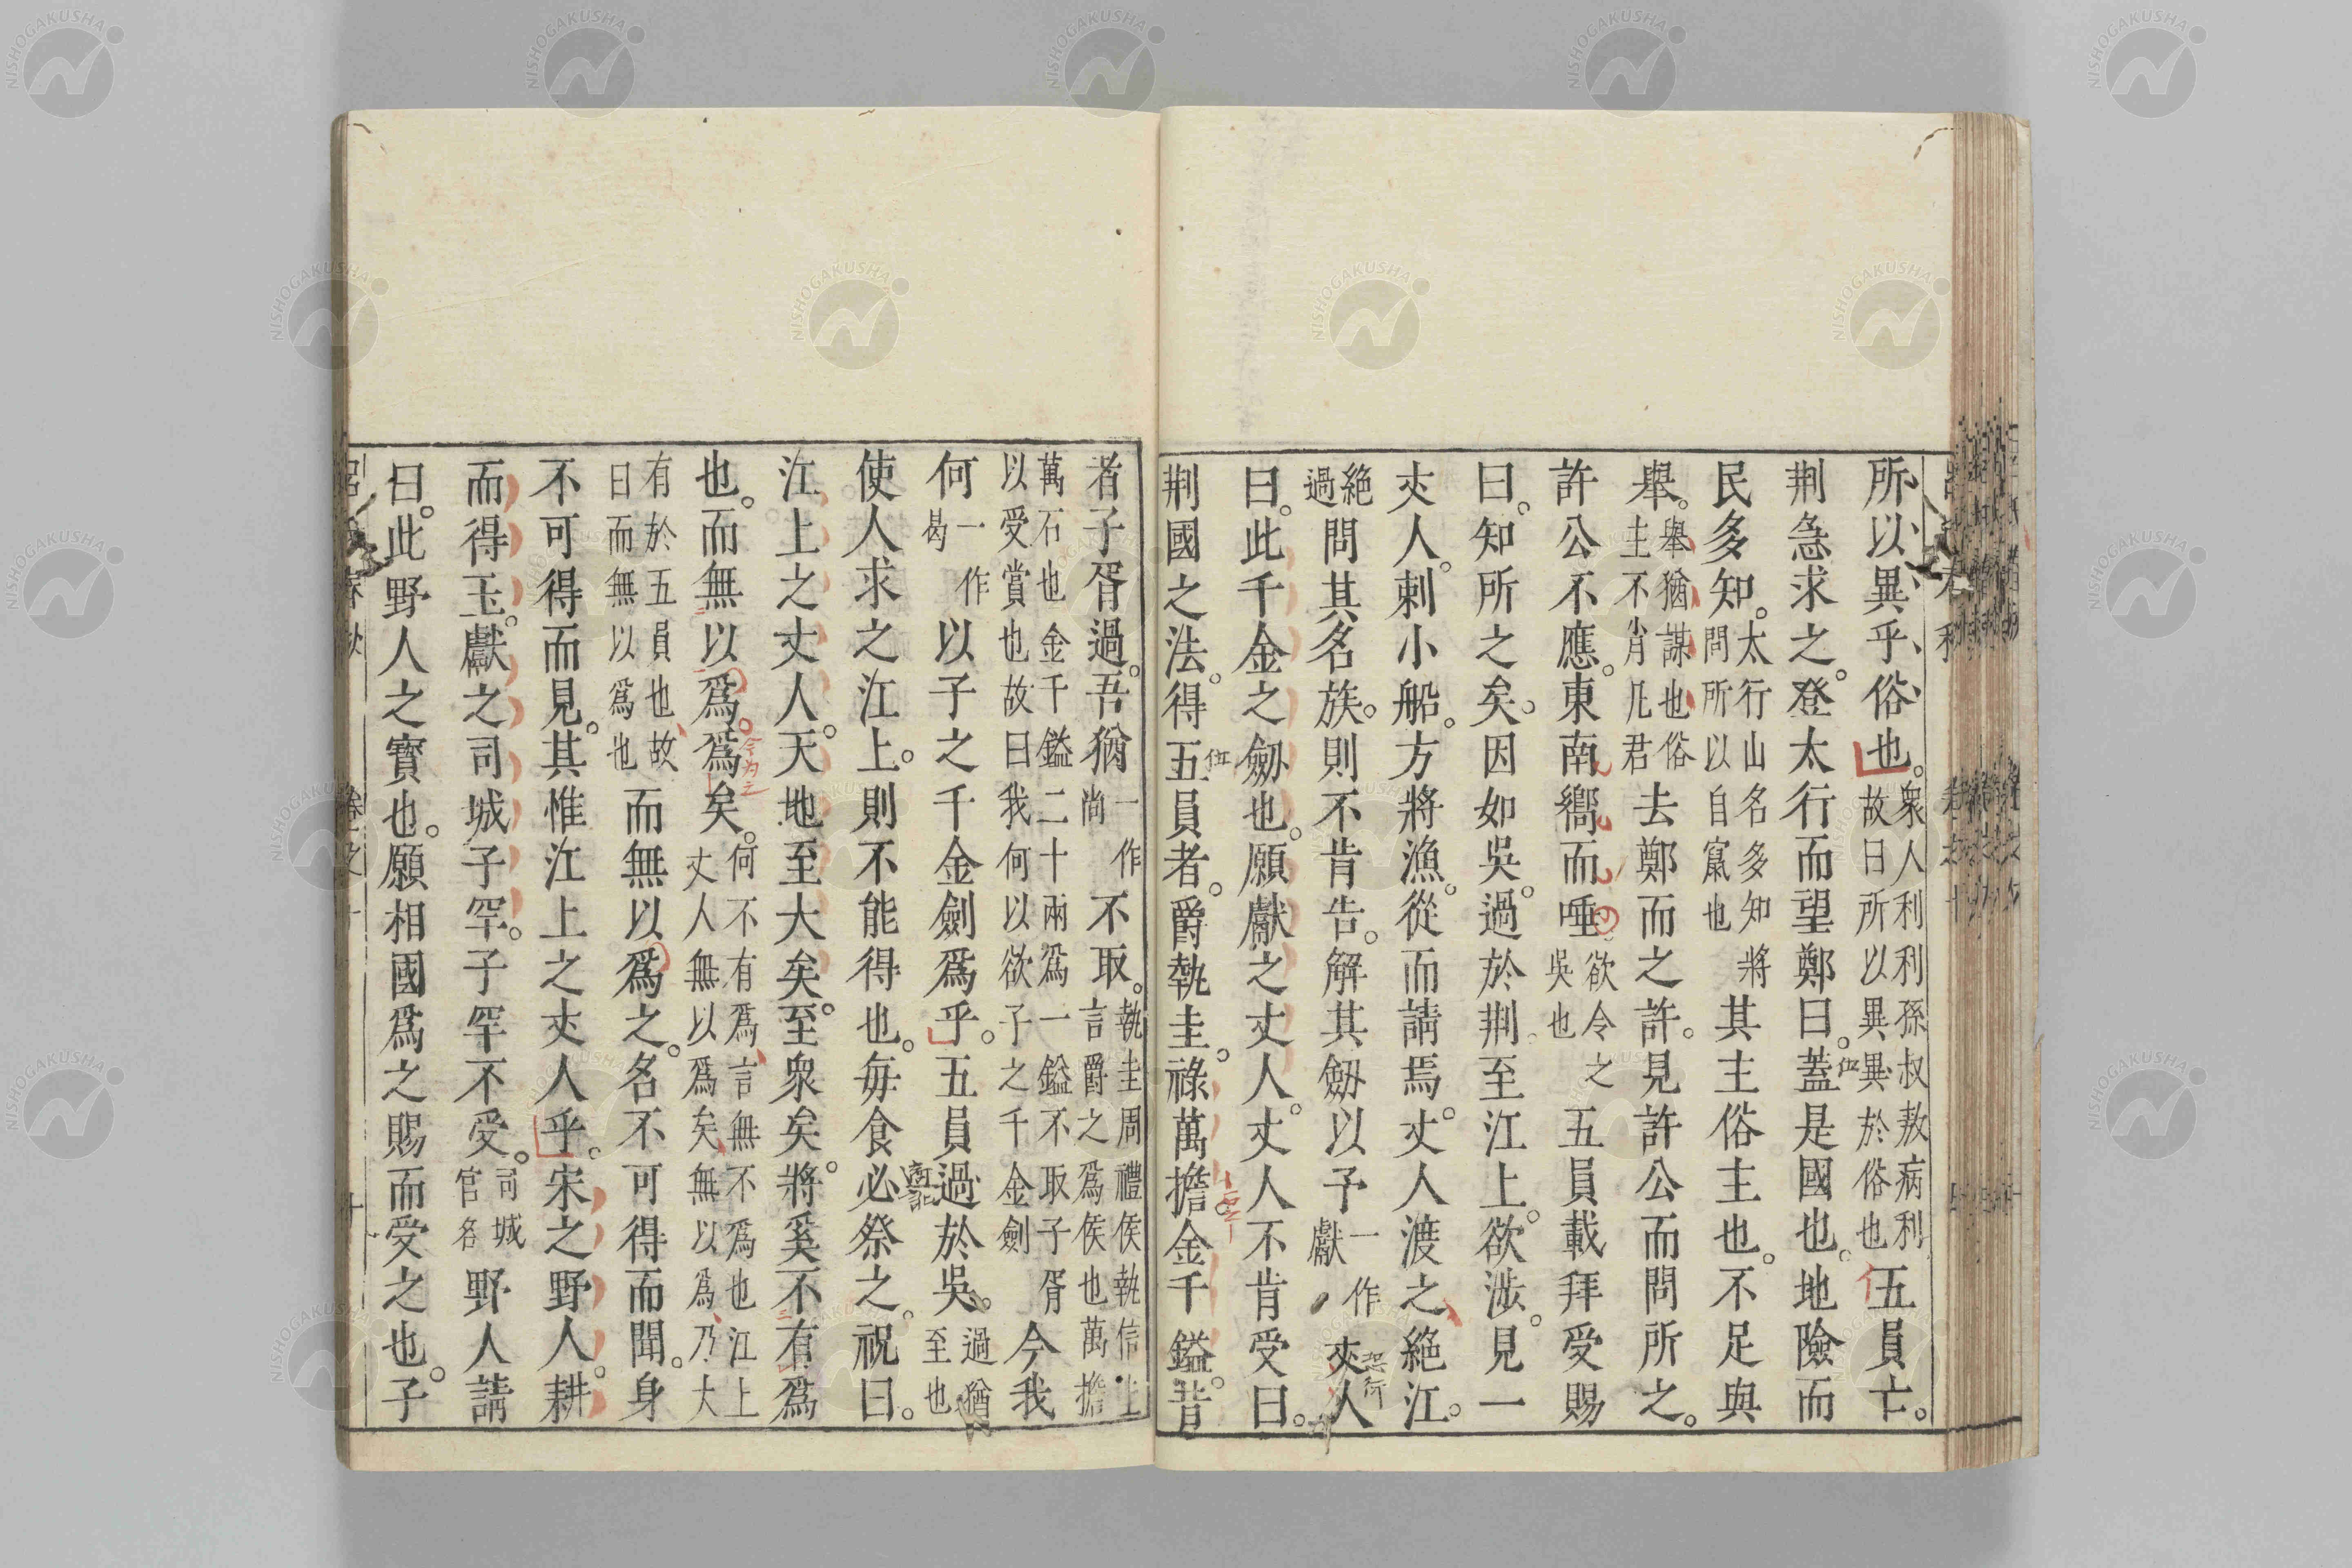 所以異乎俗也。衆人利利孫叔敖病利故曰所以異異於俗也五員亡。
荆急求之。登太行而望鄭曰。蓋是國也。地險而
民多知。太行山名多知將問所以自竄也其主俗主也。不足與
舉。舉猶謀也俗主不肖凡君去鄭而之許。見許公而問所之。
許公不應。東南嚮而唾欲令之吳也五員載拜受賜
曰。知所之矣。因如吳。過於荆至江上。欲涉。見一
丈人。刺小船。方將漁。從而請焉。丈人渡之絶江。
絶過問其名族。則不肯告。解其劒以予一作獻丈人
曰。此千金之劒也。願獻之丈人。丈人不肯受曰。
荆國之法。得五員者。爵執圭。祿萬擔。金千鎰。昔
者子胥過。吾猶一作尚不取。執圭周禮侯執信圭言爵之爲侯也萬擔
萬石也金千鎰二十兩爲一鎰不取子胥以受賞也故曰我何以欲子之千金劍今我
何一作曷以子之千金劍爲乎。五員過於吳。過猶至也
使人求之江上。則不能得也。每食必祭之。祝曰。
江上之丈人。天地至大矣。至衆矣。將奚不有爲
也。而無以爲。爲矣。何不有爲言無不爲也江上丈人無以爲矣無以爲乃大
有於五員也故曰而無以爲也而無以爲之。名不可得而聞。身
不可得而見。其惟江上之丈人乎。宋之野人。耕
而得玉。獻之司城子罕。子罕不受。司城官名野人請
曰。此野人之寶也。願相國爲之賜而受之也。子